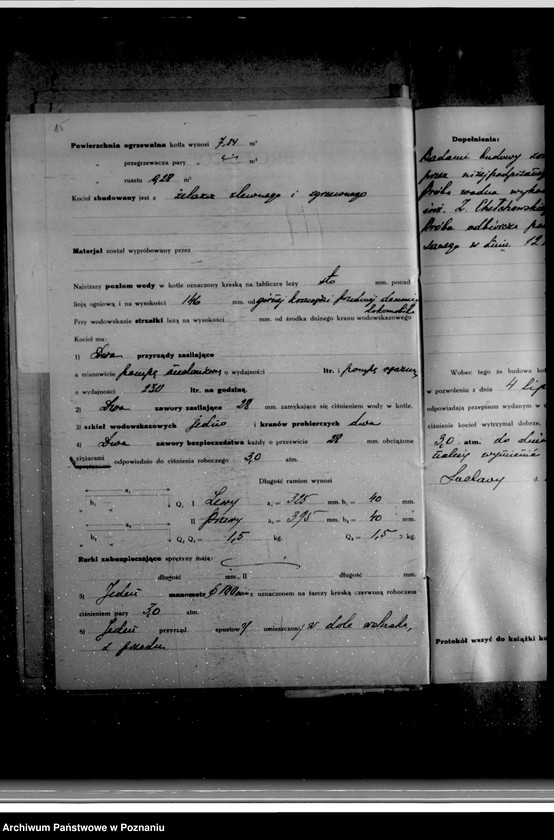 Powierzchnia ogrzewalna kotła wynosi 7,84 m²
„ przegrzewacza pary „ m²
„ rusztu 0,28 m²
Kocioł zbudowany jest z żelaza zlewnego i zgrzewnego
Materjał został wypróbowany przez
Najniższy poziom wody w kotle oznaczony kreską na tabliczce leży sto mm. ponad
linją ogniową i na wysokości 146 mm. od górnej krawędzi
lokomobili
Przy wodowskazie strzałki leżą na wysokości mm. od środka dolnego kranu wodowskazowego
Kocioł ma:
1) Dwa przyrządy zasilające
a mianowicie pompę o wydajności ltr. i pompę ręczną
o wydajności 230 ltr. na godzinę.
2) Dwa zawory zasilające 28 mm. zamykające się ciśnieniem wody w kotle.
3) szkieł wodowskazowych jedno i kranów probierczych dwa
4) Dwa zawory bezpieczeństwa każdy o prześwicie 28 mm. obciążone
ciężarami odpowiednio do ciśnienia roboczego 3,0 atm.
Długość ramion wynosi
a₁ b₁ Q₁ I Lewy a₁ = 325 mm. b₁ = 40 mm.
II Prawy a₂ = 395 mm. b₂ = 40 mm.
a₂ b₂ Q₂ Q₁ = 1,5 kg. Q₂ = 1,5 kg.
Rurki zabezpieczające sprężyny mają:
długość mm. II długość mm.
5) Jeden manometr ∅ 100 mm z oznaczonem na tarczy kreską czerwoną roboczem
ciśnieniem pary 3,0 atm.
6) Jeden przyrząd spustowy umieszczony w dole
z przodu
Dopełnienia:
Badania budowy
przez niżejpodpisanego
Próba wodna
inż. Z.
Próba odbiorcza
w dniu 12.
Wobec tego że budowa kot
w pozwoleniu z dnia 4 lip
odpowiadają przepisom wydanym w
ciśnienie kocioł wytrzymał dobrze,
3,0 atm. do dnia
Protokół wszyć do książki ko
Archiwum Państwowe w Poznaniu